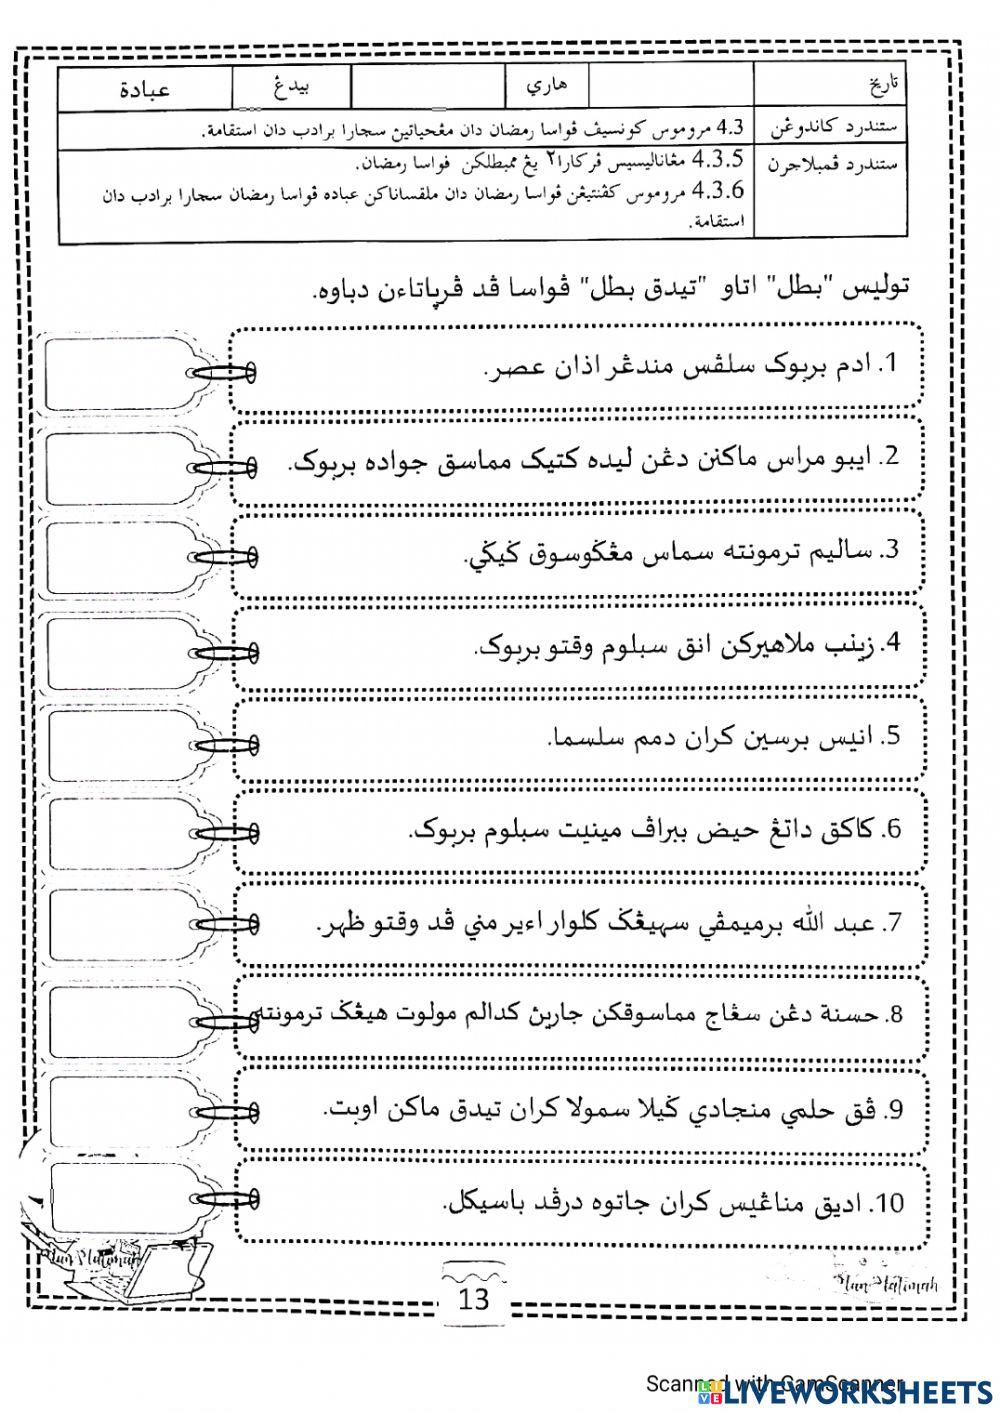 تاريخ هاري بيدڠ عبادة
ستندرد کاندوڠن 4.3 مروموس کونسيڤ ڤواسا رمضان دان مڠحياتيڽ سچارا برادب دان استقامة.
ستندرد ڤمبلاجرن 4.3.5 مڠاناليسيس ڤرکارا٢ يڠ ممبطلکن ڤواسا رمضان.
4.3.6 مروموس کڤنتيڠن ڤواسا رمضان دان ملقساناکن عباده ڤواسا رمضان سچارا برادب دان
استقامة.
توليس "بطل" اتاو "تيدق بطل" ڤواسا ڤد ڤرڽاتاءن دباوه.
1. ادم بربوک سلڤس مندڠر اذان عصر.
2. ايبو مراس ماکنن دڠن ليده کتيک مماسق جواده بربوک.
3. ساليم ترمونته سماس مڠݢوسوق ݢيݢي.
4. زينب ملاهيرکن انق سبلوم وقتو بربوک.
5. انيس برسين کران دمم سلسما.
6. کاکق داتڠ حيض ببراڤ مينيت سبلوم بربوک.
7. عبد الله برميمڤي سهيڠݢ کلوار اءير مني ڤد وقتو ظهر.
8. حسنة دڠن سڠاج مماسوقکن جاريڽ کدالم مولوت هيڠݢ ترمونته
9. ڤق حلمي منجادي ݢيلا سمولا کران تيدق ماکن اوبت.
10. اديق مناڠيس کران جاتوه درڤد باسيکل.
13
Scanned with CamScanner
LIVEWORKSHEETS